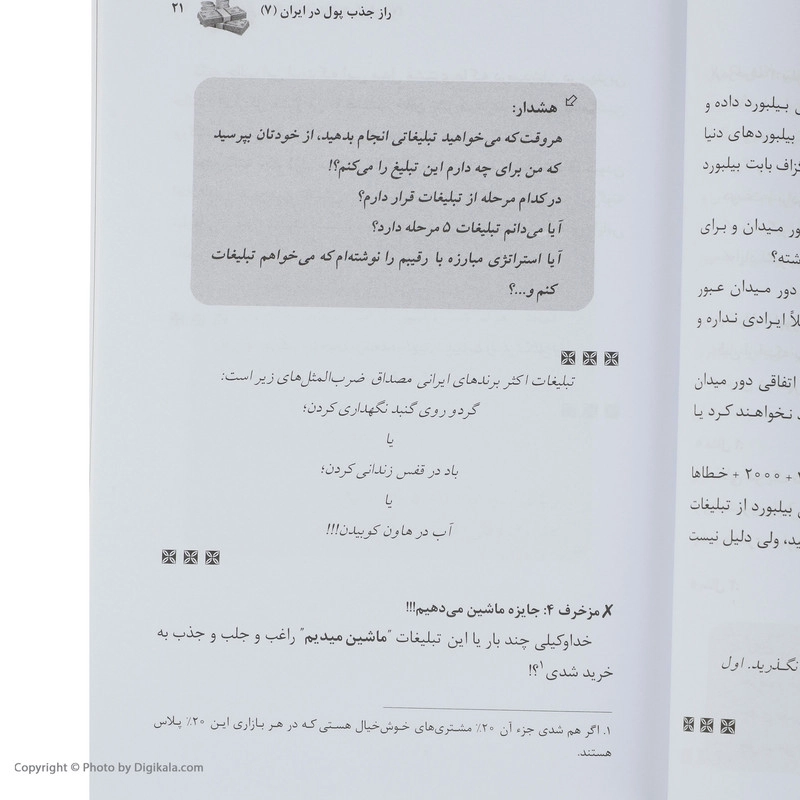 راز جذب پول در ایران (۷)
۲۱
هشدار:
هر وقت که می‌خواهید تبلیغاتی انجام بدهید، از خودتان بپرسید
که من برای چه دارم این تبلیغ را می‌کنم؟!
در کدام مرحله از تبلیغات قرار دارم؟
آیا می‌دانم تبلیغات ۵ مرحله دارد؟
آیا استراتژی مبارزه با رقیبم را نوشته‌ام که می‌خواهم تبلیغات
کنم و...؟
تبلیغات اکثر برندهای ایرانی مصداق ضرب‌المثل‌های زیر است:
گردو روی گنبد نگهداری کردن؛
یا
باد در قفس زندانی کردن؛
یا
آب در هاون کوبیدن!!!
✗ مزخرف ۴: جایزه ماشین می‌دهیم!!!
خداوکیلی چند بار با این تبلیغات "ماشین میدیم" راغب و جلب و جذب به
خرید شدی۱؟!
۱. اگر هم شدی جزء آن ۲۰٪ مشتری‌های خوش‌خیال هستی که در هر بازاری این ۲۰٪ پلاس
هستند.
بیلبورد داده و
بیلبوردهای دنیا
گزاف بابت بیلبورد
میدان و برای
دور میدان عبور
ایرادی نداره و
اتفاقی دور میدان
نخواهند کرد یا
+ ۲۰۰۰ + خطاها
بیلبورد از تبلیغات
ولی دلیل نیست
نگذرید. اول
Copyright © Photo by Digikala.com